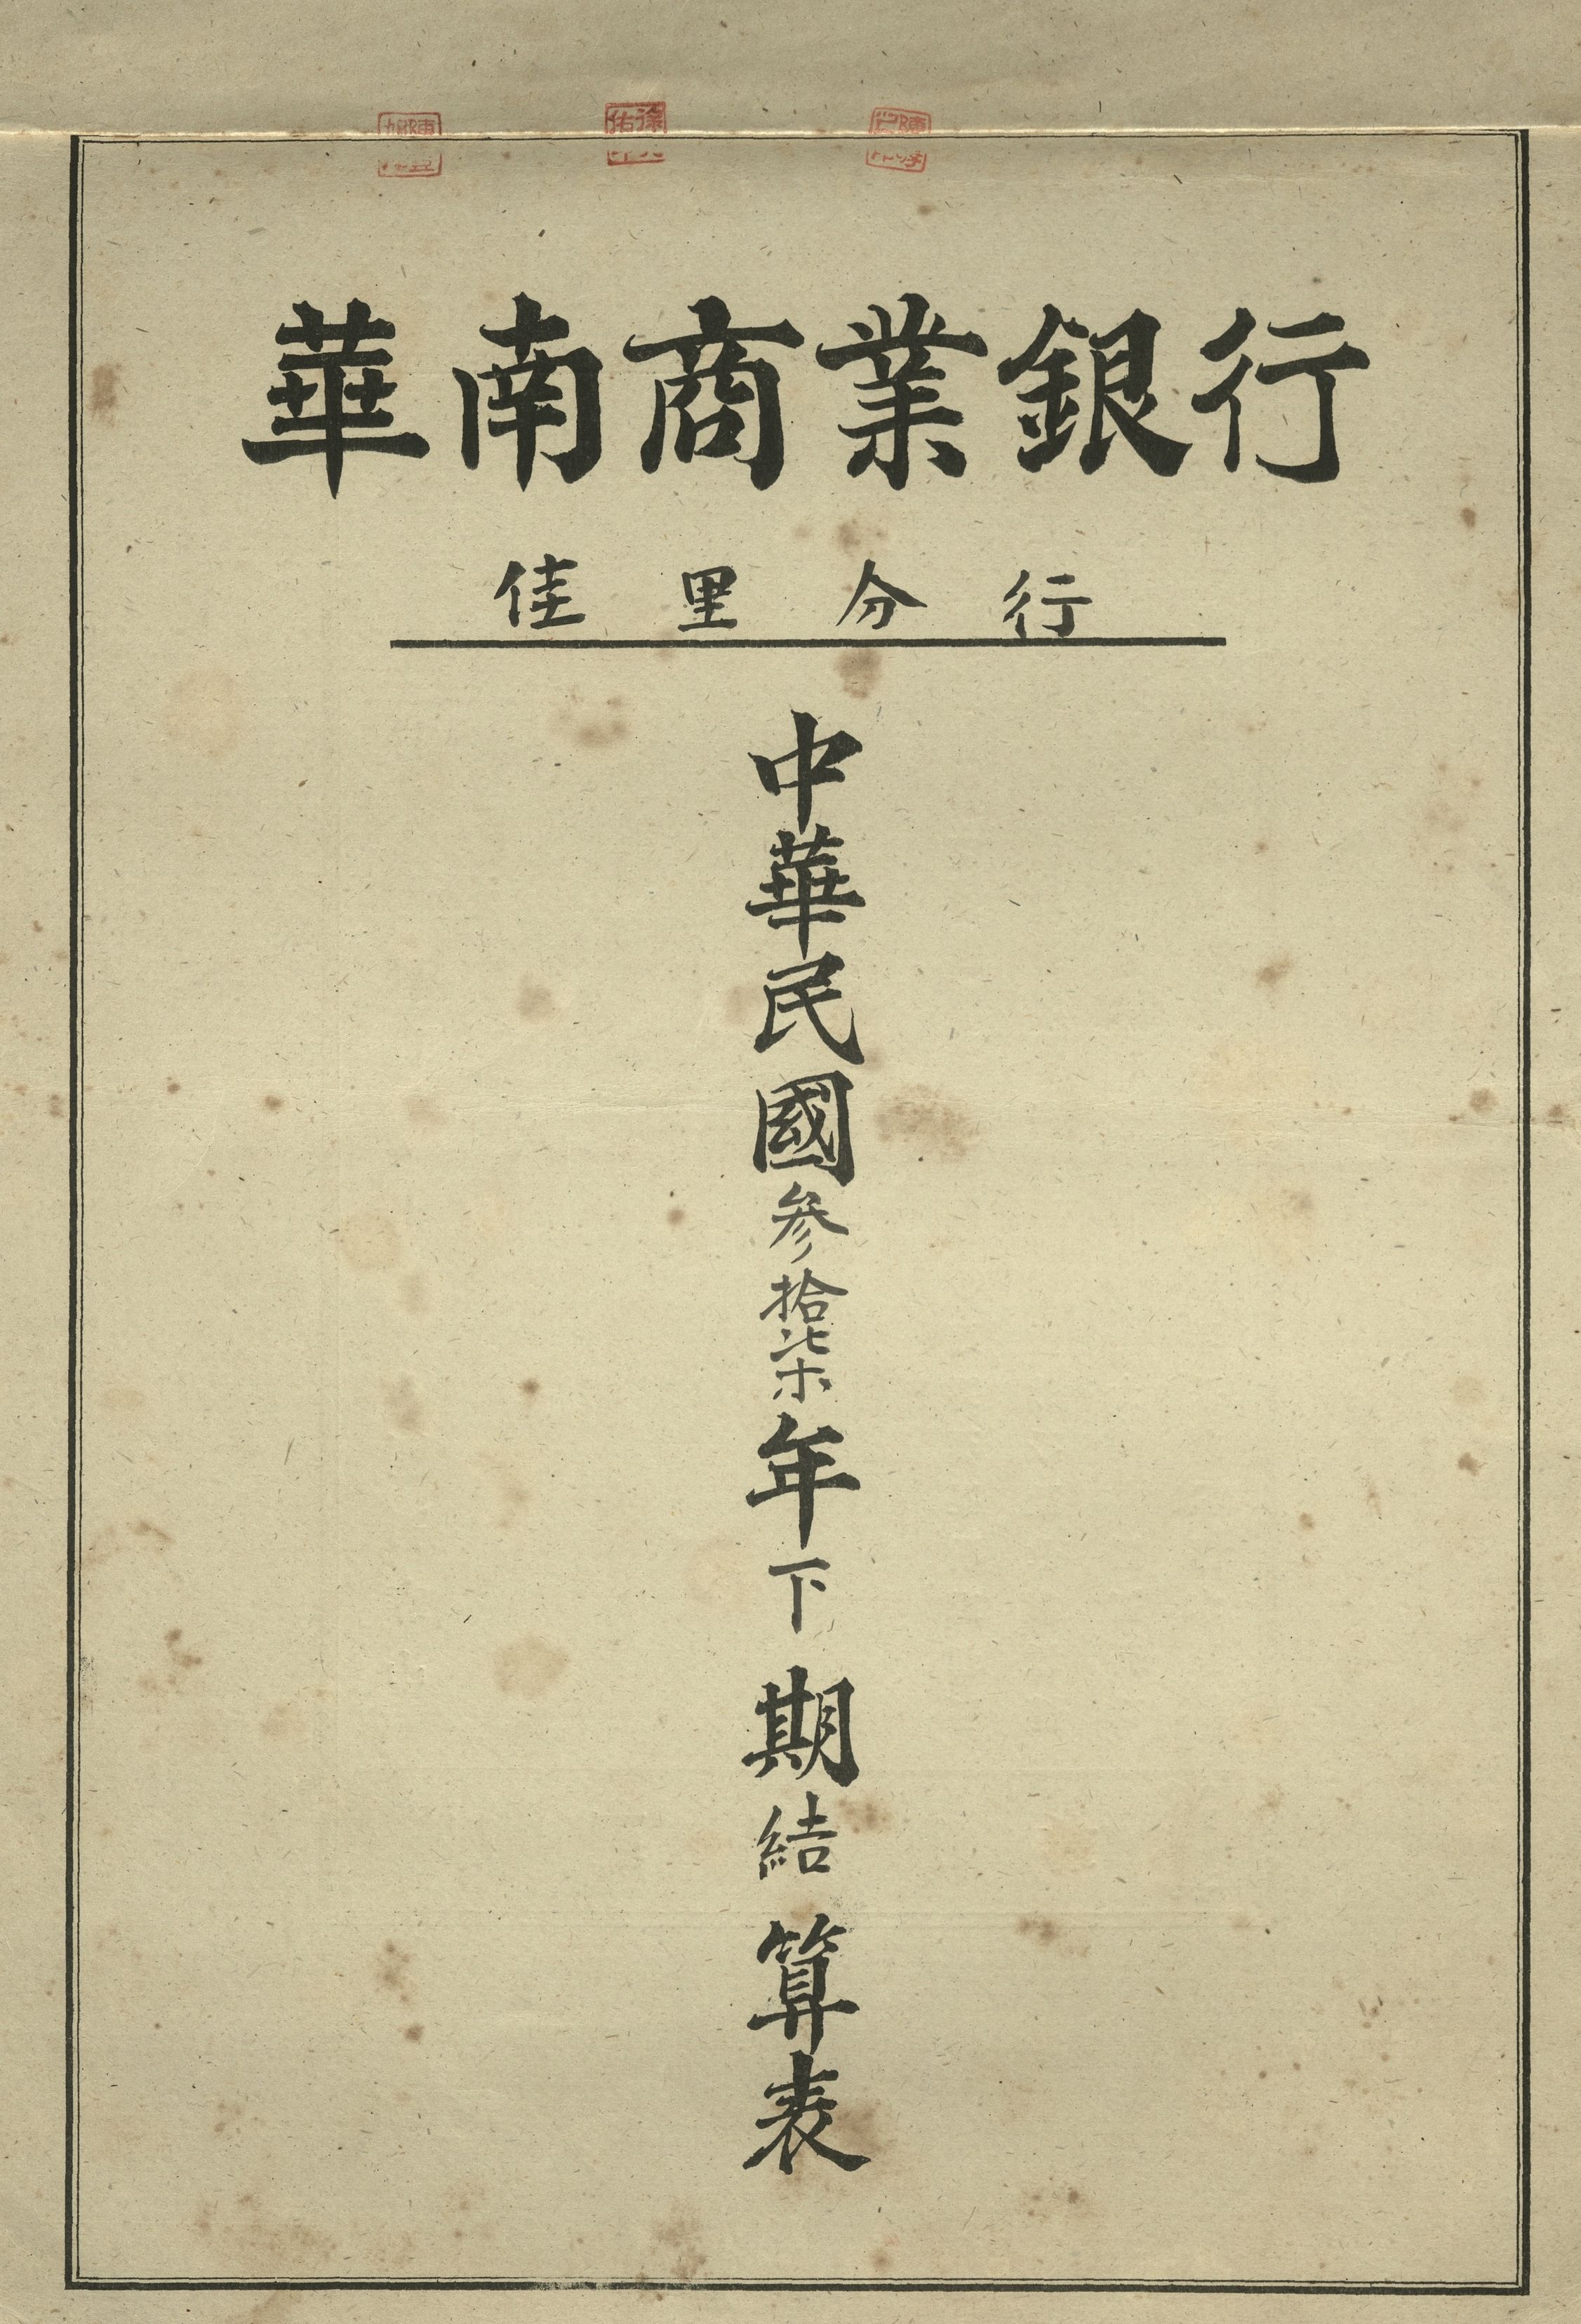 華南商業銀行
佳里分行
中華民國參拾柒年下期結算表